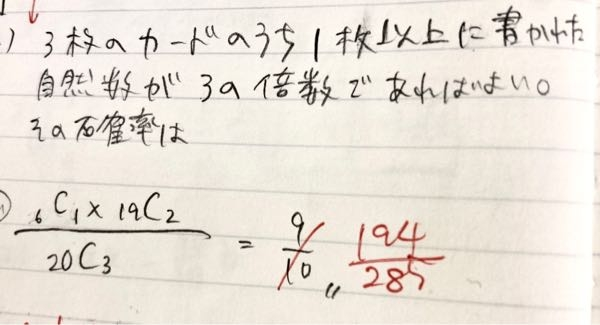 ) 3枚のカードのうち1枚以上に書かれた
自然数が3の倍数であればよい。
その確率は
6C1×19C2 / 20C3 = 9/10 〃 194/285